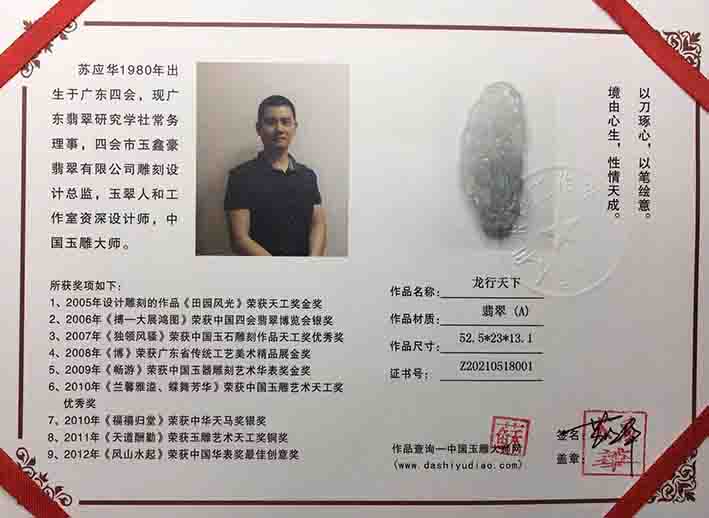 苏应华1980年出
生于广东四会，现广
东翡翠研究学社常务
理事，四会市玉鑫豪
翡翠有限公司雕刻设
计总监，玉翠人和工
作室资深设计师，中
国玉雕大师。
以刀琢心，以笔绘意。
境由心生，性情天成。
所获奖项如下：
1、2005年设计雕刻的作品《田园风光》荣获天工奖金奖
2、2006年《搏一大展鸿图》荣获中国四会翡翠博览会银奖
3、2007年《独领风骚》荣获中国玉石雕刻作品天工奖优秀奖
4、2008年《博》荣获广东省传统工艺美术精品展金奖
5、2009年《畅游》荣获中国玉器雕刻艺术华表奖金奖
6、2010年《兰馨雅溢、蝶舞芳华》荣获中国玉雕艺术天工奖
优秀奖
7、2010年《福禧归堂》荣获中华天马奖银奖
8、2011年《天道酬勤》荣获玉雕艺术天工奖铜奖
9、2012年《风山水起》荣获中国华表奖最佳创意奖
作品名称：龙行天下
作品材质：翡翠（A）
作品尺寸：52.5*23*13.1
证书号：Z20210518001
作品查询一中国玉雕大师网
(www.dashiyudiao.com)
签名：
盖章：